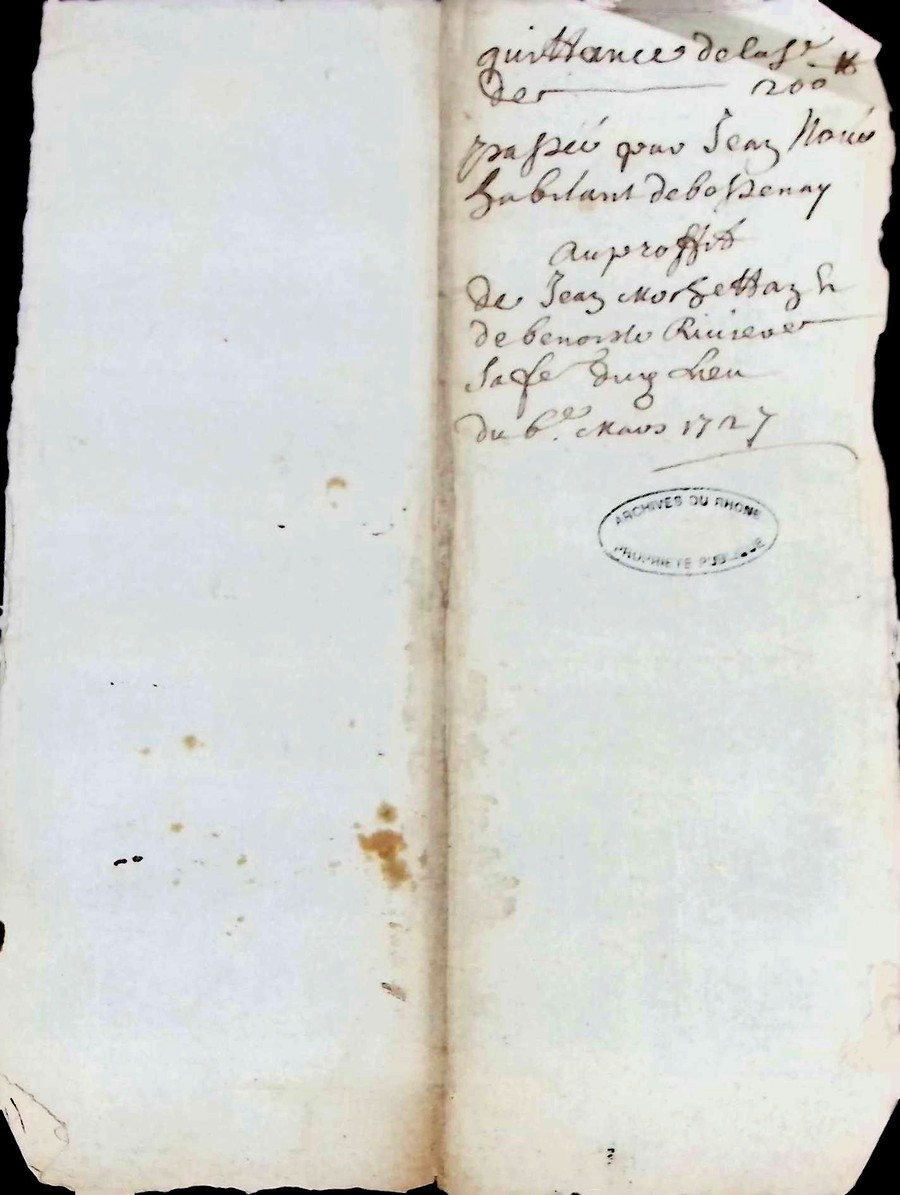 quittance de la s.e
de ——— 200 ₶
passée par Jean
habitant de bossenay
au proffit
de Jean Morge
de benoiste
sa fe dud lieu
du 6.e Mars 1727
ARCHIVES DU RHONE
PROPRIETE PUBLIQUE